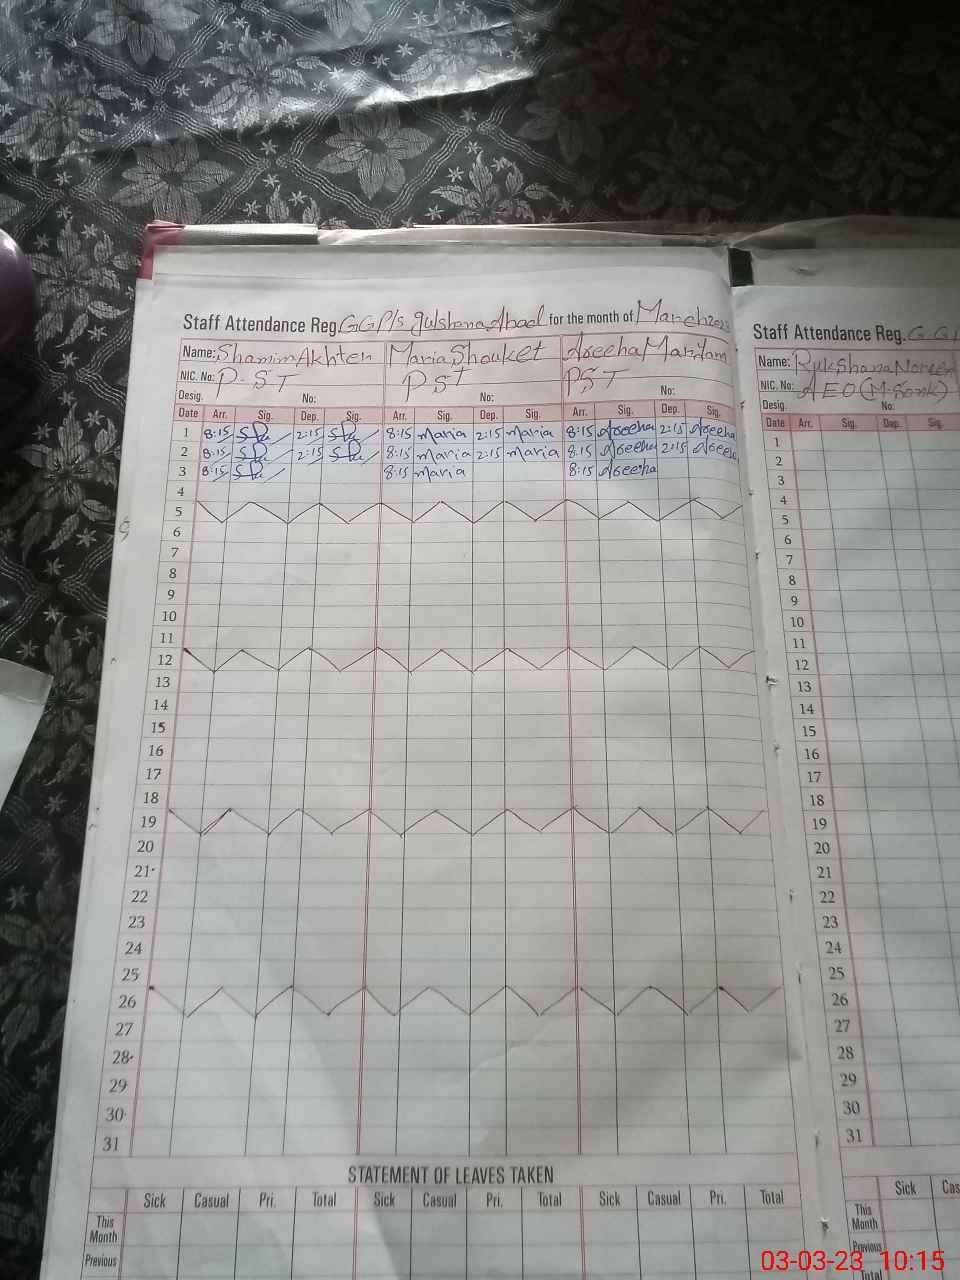 Staff Attendance Reg. GGP/s gulshana Abad for the month of March 2023
Name: Shamim Akhter Maria Shouket Areeha Maryam
NIC. No: P-ST PST PST
Desig. No: No: No:
Date Arr. Sig. Dep. Sig. Arr. Sig. Dep. Sig. Arr. Sig. Dep. Sig.
1 8:15 2:15 8:15 maria 2:15 maria 8:15 Areeha 2:15 Areeha
2 8:15 2:15 8:15 maria 2:15 maria 8:15 Areeha 2:15 Areeha
3 8:15 8:15 maria 8:15 Areeha
4
5
6
7
8
9
10
11
12
13
14
15
16
17
18
19
20
21
22
23
24
25
26
27
28
29
30
31
STATEMENT OF LEAVES TAKEN
Sick Casual Pri. Total Sick Casual Pri. Total Sick Casual Pri. Total
This Month
Previous
Staff Attendance Reg. G.G
Name: Rukshana Noreen
NIC. No: AEO
Desig. No:
Date Arr. Sig. Dep. Sig.
1
2
3
4
5
6
7
8
9
10
11
12
13
14
15
16
17
18
19
20
21
22
23
24
25
26
27
28
29
30
31
Sick Cas
This Month
Previous
Total
03-03-23 10:15